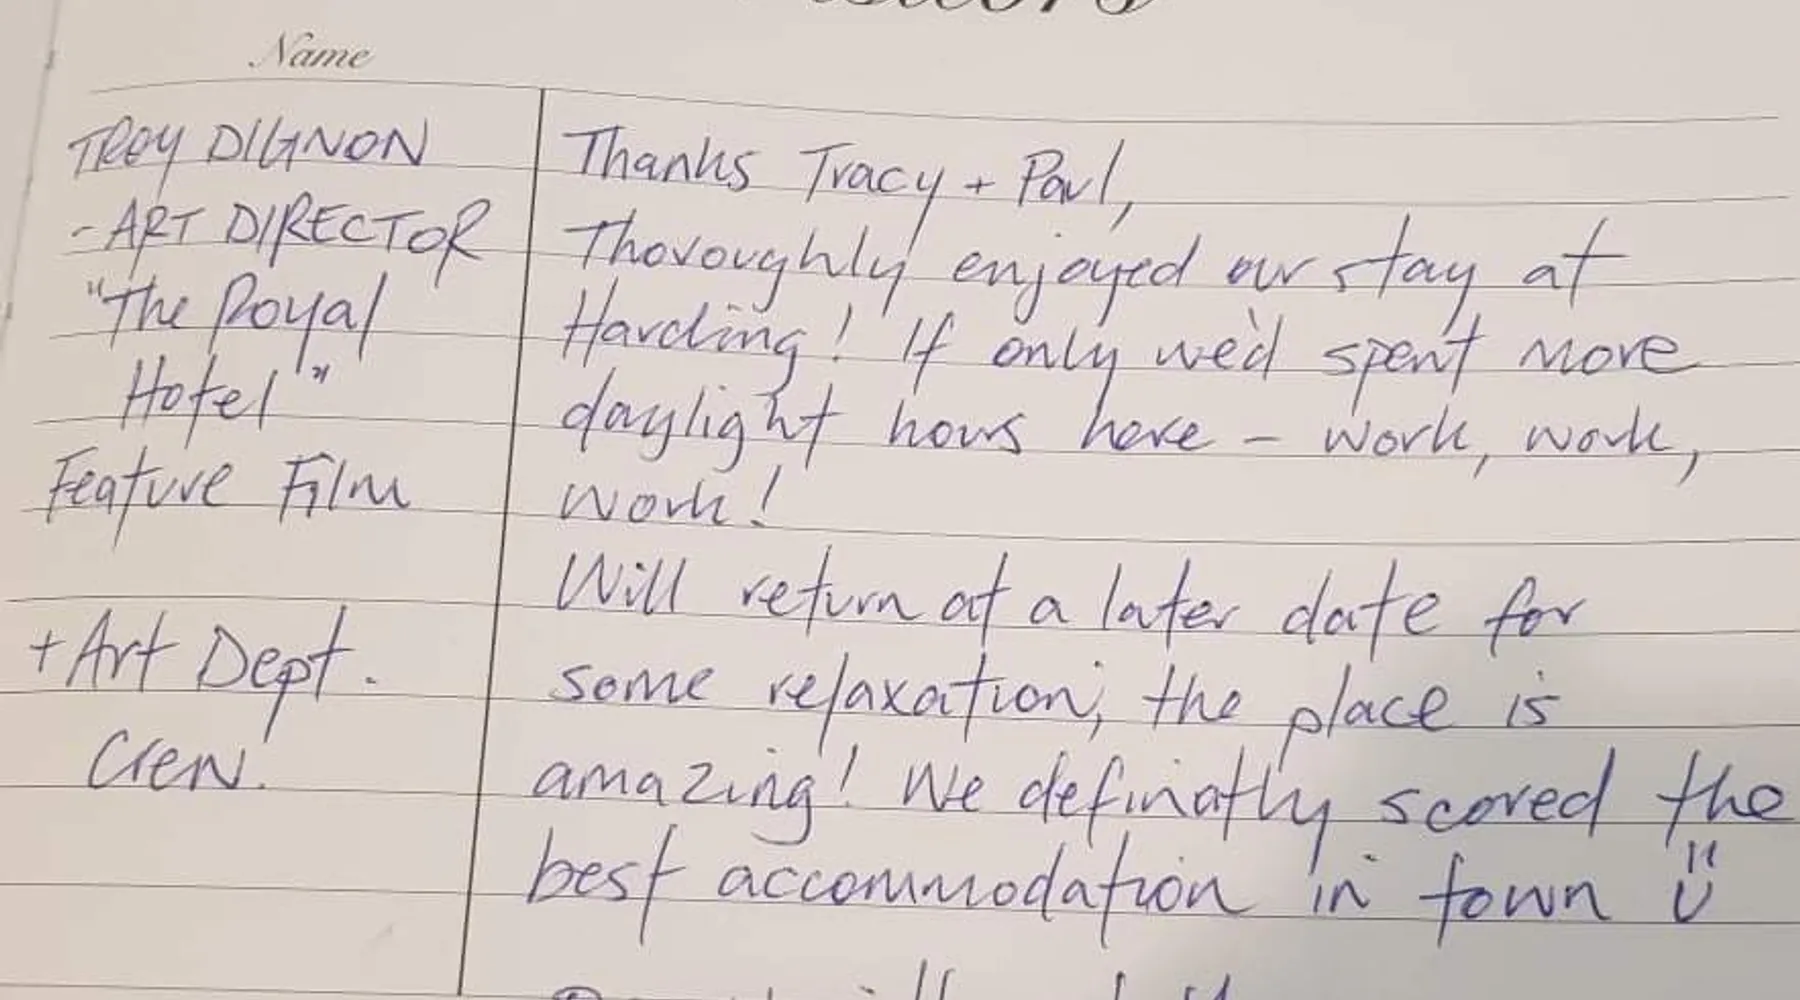 Name
TROY DIGNON
- ART DIRECTOR
"The Royal
Hotel"
Feature Film
+ Art Dept.
Crew.
Thanks Tracy + Paul,
Thoroughly enjoyed our stay at
Harding! If only we'd spent more
daylight hours here - work, work,
work!
Will return at a later date for
some relaxation, the place is
amazing! We definatly scored the
best accommodation in town